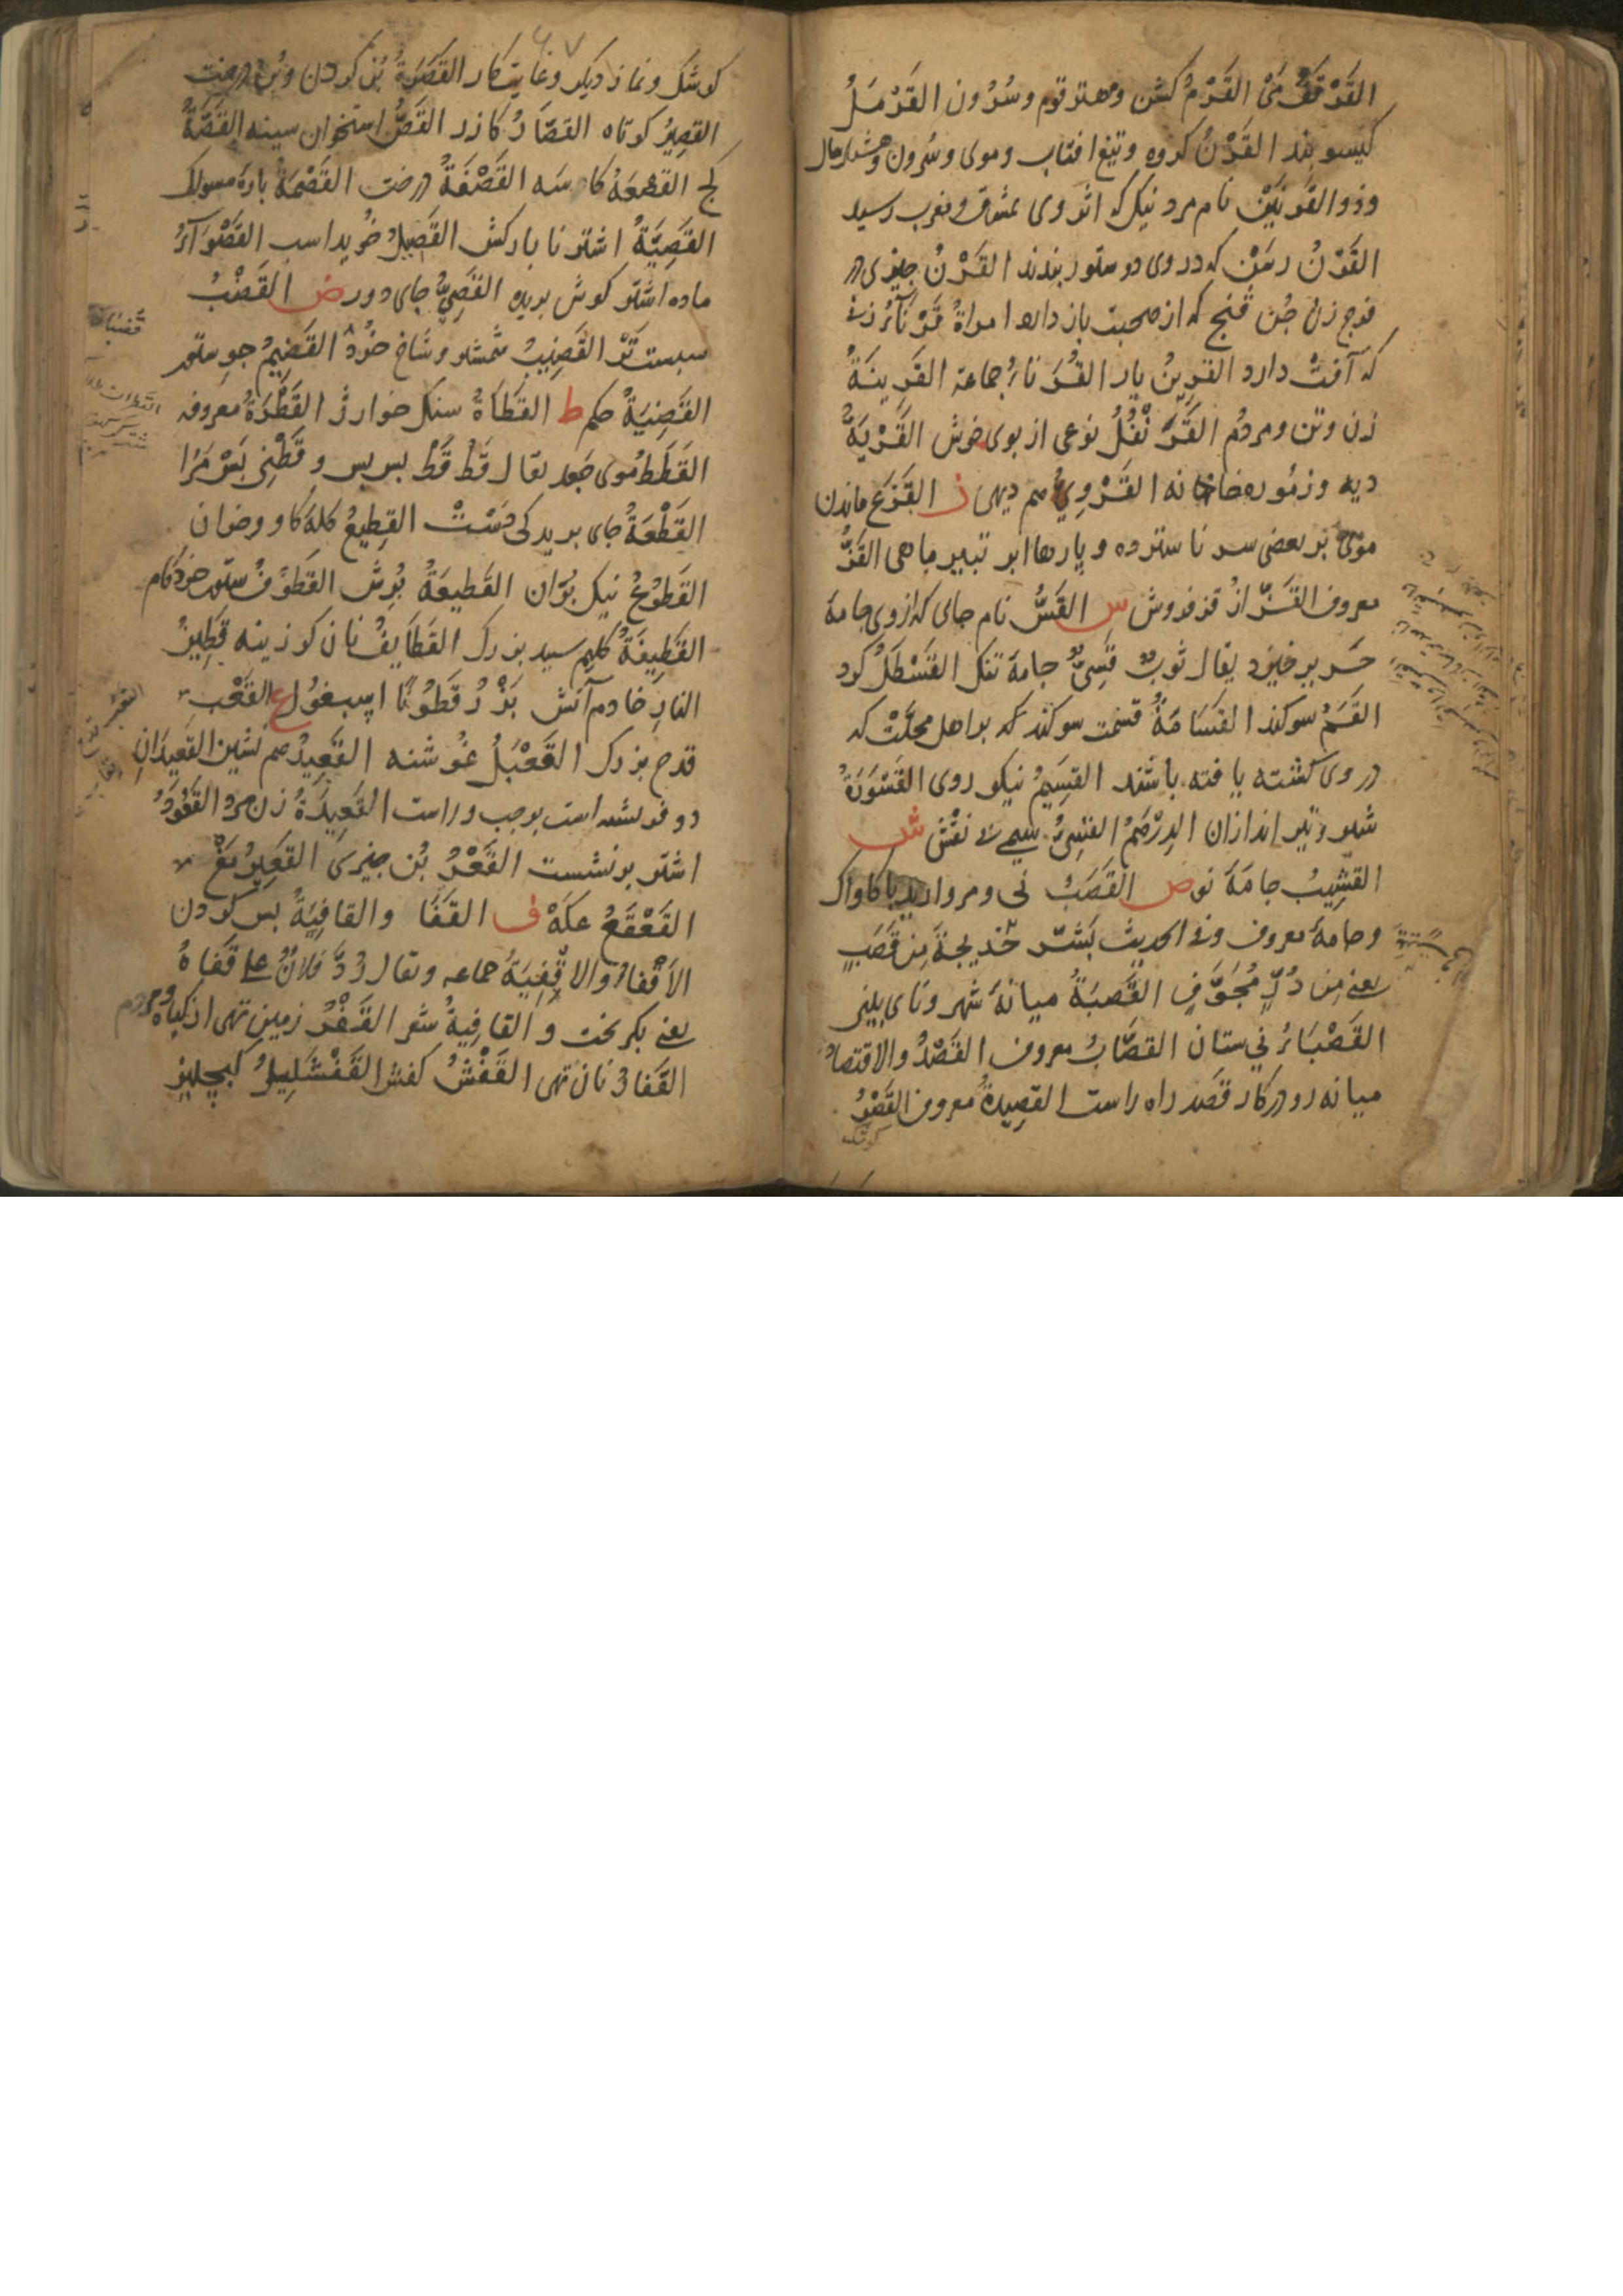 القَرْقَفُ مَیْ القَرْمُ کشن ومهتر قوم وسُرُون القَرْمَلُ
کیسو بند القَرْنُ کروه وتیغ افتاب وموی وسُرون وهشتاد سال
وذو القَرْنَيْن نام مرد نیک که اثر وی بمشرق ومغرب رسید
القَرَنُ رسَنْ که در وی دو ستور بندند القَرْنُ چیزی در
فرج زن چُن فنج که از صحبت باز دارد امراةٌ قَرْنَآءُ زنی
که آفتْ دارد القرِينُ یار القُرَنَاءُ جماعة القَرِينَةُ
زن وتن ومردم القَرَنْفُلُ نوعی از بوی خوش القَرْيَةُ
دیه وزنبور خانه القَرَوِيُّ هم دیهی ز القَزَعُ ماندن
موی بر بعضی سر ناسترده وپارهاابر تبیر ماهی القَزُّ
معروف القَزَّازُ قز فروش س القَسُّ نام جای که ازوی جامهٔ
حَریر خیزد یقال ثوبٌ قَسِيٌّ جامهٔ تنک القَسْطَلُ کرد
القَسَمُ سوکند القَسَامَةُ قسمت سوکند که بر اهل محلّتْ که
در وی کشته یافته باشند القسِيمُ نیکو روی القَسْوَرَةُ
شیر وتیر اندازان الدِرْهَمُ القَسِيُّ سیم بی نقش ش
القشِيبُ جامهٔ نو ص القَصَبُ نی ومروارید با کاواک
وجامهٔ معروف وفي الحدیث بَشّر خَدیجةَ مِن قَصَبٍ
یعنی مِن دُرٍّ مُجَوَّفٍ القَصَبَةُ میانهٔ شهر ونای بینی
القَصْبَاءُ نی ستان القصّابُ معروف القَصْدُ والاقتصادُ
میانه رو در کار قَصَد راه راست القصِيدةُ معروف القَصْرُ
کوشک
کوشک ونماز دیکر وغایت کار القَصَرَةُ بُن کردن وبُن درخت
القصِيرُ کوتاه القصّارُ کازر القَصُّ استخوان سینه القَصَّةُ
کج القصْعَةُ کاسَه القَصْفَةُ درخت القَصْمَةُ پارهٔ مسواک
القَصِيَّةُ اشتر نا بارکش القَصِيلُ خُوید اسب القَصْوَآءُ
ماده اشتر کوش بریده القَصِيُّ جای دور ض القَضْبُ
سبست تَرْ القَضِيبُ شمشیر وشاخ خُرْد القَضِيمُ جو ستور
القَضِيَةُ حکم ط القَطَاةُ سنک خوار القَطْرَةُ معروفه
القَطَطُ موی جعد یقال قَطْ قَطْ بس بس وقَطْنِي بَسْ مَرا
القَطْعَةُ جای بریدکی دَسْتْ القِطِيعُ کلهٔ کاو وخران
القَطِيعَةُ بُرِش القَطُوفُ ستور خرد کام
القَطِيفَةُ کلیم سپید بزرک القَطَایِفُ نان کوزینه قَطِينُ
النارِ خادم آتش بَزْرُ قَطُونًا اسپغول ع القَعْب
قدح بزرک القَعْبَلُ غُوشنه القَعِيدُ هم نشین القَعِیدَانِ
دو فرشته است بر چپ وراست القَعِيدَةُ زن مرد القَعُودُ
اشتر برنشست القَعْرُ بُن چیزی القَعِيرُ مَغْ
القَعْقَعُ عکَهْ ف القَفَا والقافِيَةُ پس کردن
الأَقْفاءُ والاَقْفِيَةُ جماعه ویقال رُدَّ فلانٌ علی قَفَاهُ
یعنی بکریخت والقافِيةُ شعر القَفْرُ زمین تهی از کیاه ومردم
القَفَارُ نان تهی القَفْشُ کفش القَفْشَلِيلُ کبچلیز
قُضبان